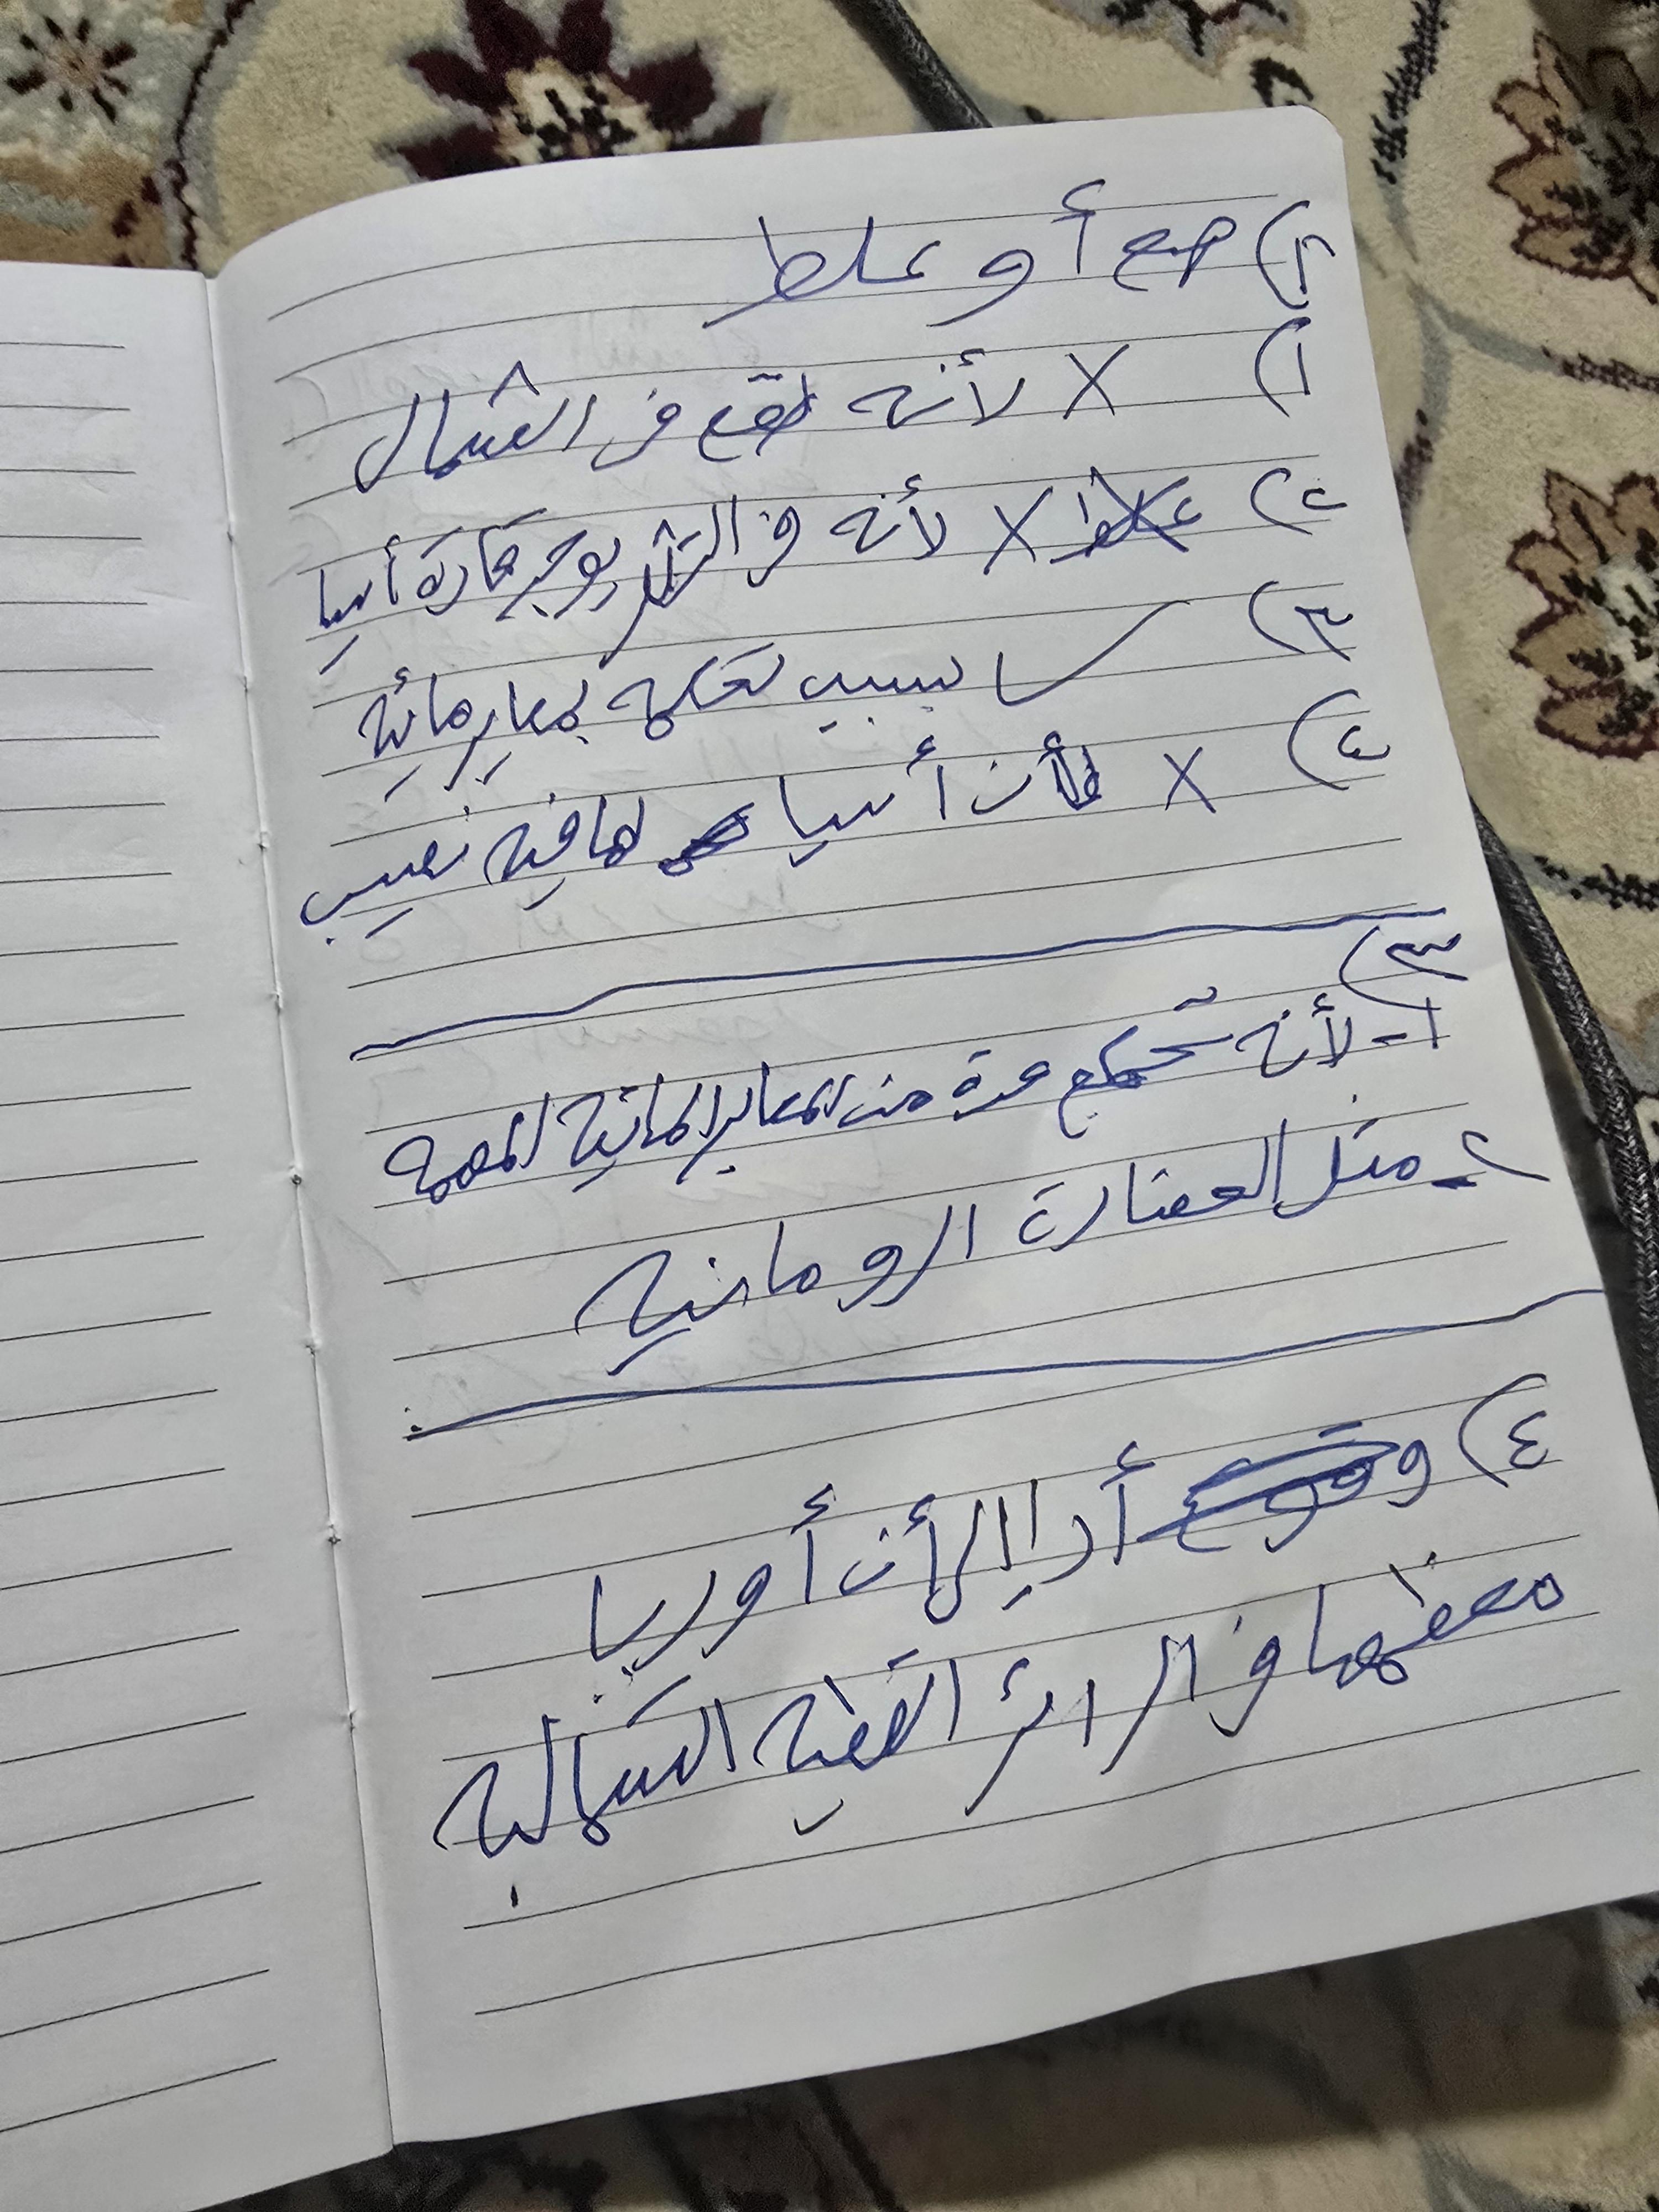 ٢) صح أو غلط
١) X لأنه تقع في الشمال
٢) X لأنه في الشرق يوجد قارة أسيا
٣) ✓ بسبب تحكمه بمعابر مائية
٤) X لأن أسيا لها فيه نصيب
٣)
١- لأنه تحكم عدة من المعابر المائية المهمة
٢- مثل الحضارة الرومانية
٤) و أدإلا لأن أوربا
معظمها في الدائر القطبية الشمالية